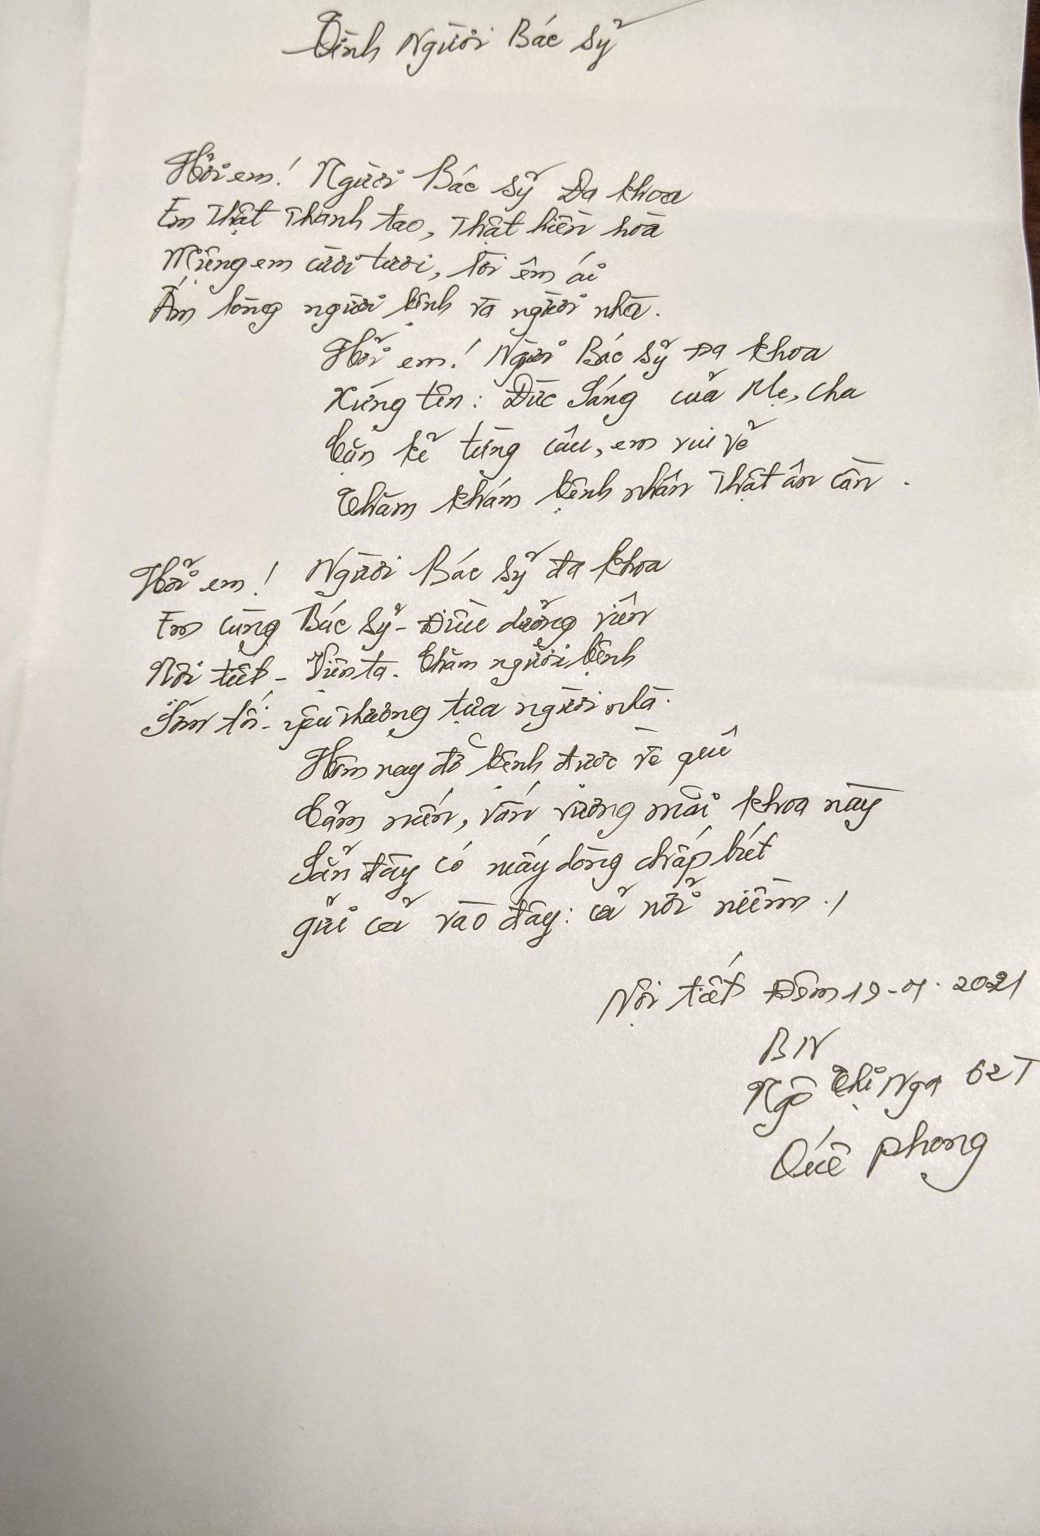 Tình Người Bác Sỹ
Hỡi em! Người Bác sỹ Đa khoa
Em Thật Thanh tao, Thật hiền hòa
Miệng em cười tươi, lời êm ái
Ấm lòng người bệnh và người nhà.
Hỡi em! Người Bác Sỹ Đa khoa
Xứng tên: Đức Sáng của Mẹ, cha
Cặn kẽ từng câu, em vui vẻ
Thăm khám bệnh nhân Thật ân cần.
Hỡi em! Người Bác sỹ đa khoa
Em cùng Bác Sỹ - Điều dưỡng viên
Nội tiết - Viện ta. Chăm người bệnh
Sớm tối - yêu thương tựa người nhà.
Hôm nay đỡ bệnh được về quê
Cảm mến, vấn vương mãi khoa này
Sẵn đây có mấy dòng chấp bút
gửi cả vào đây: cả nỗi niềm./
Nội tiết Đêm 19-01.2021
BN
Ngô Thị Nga 62T
Quế Phong